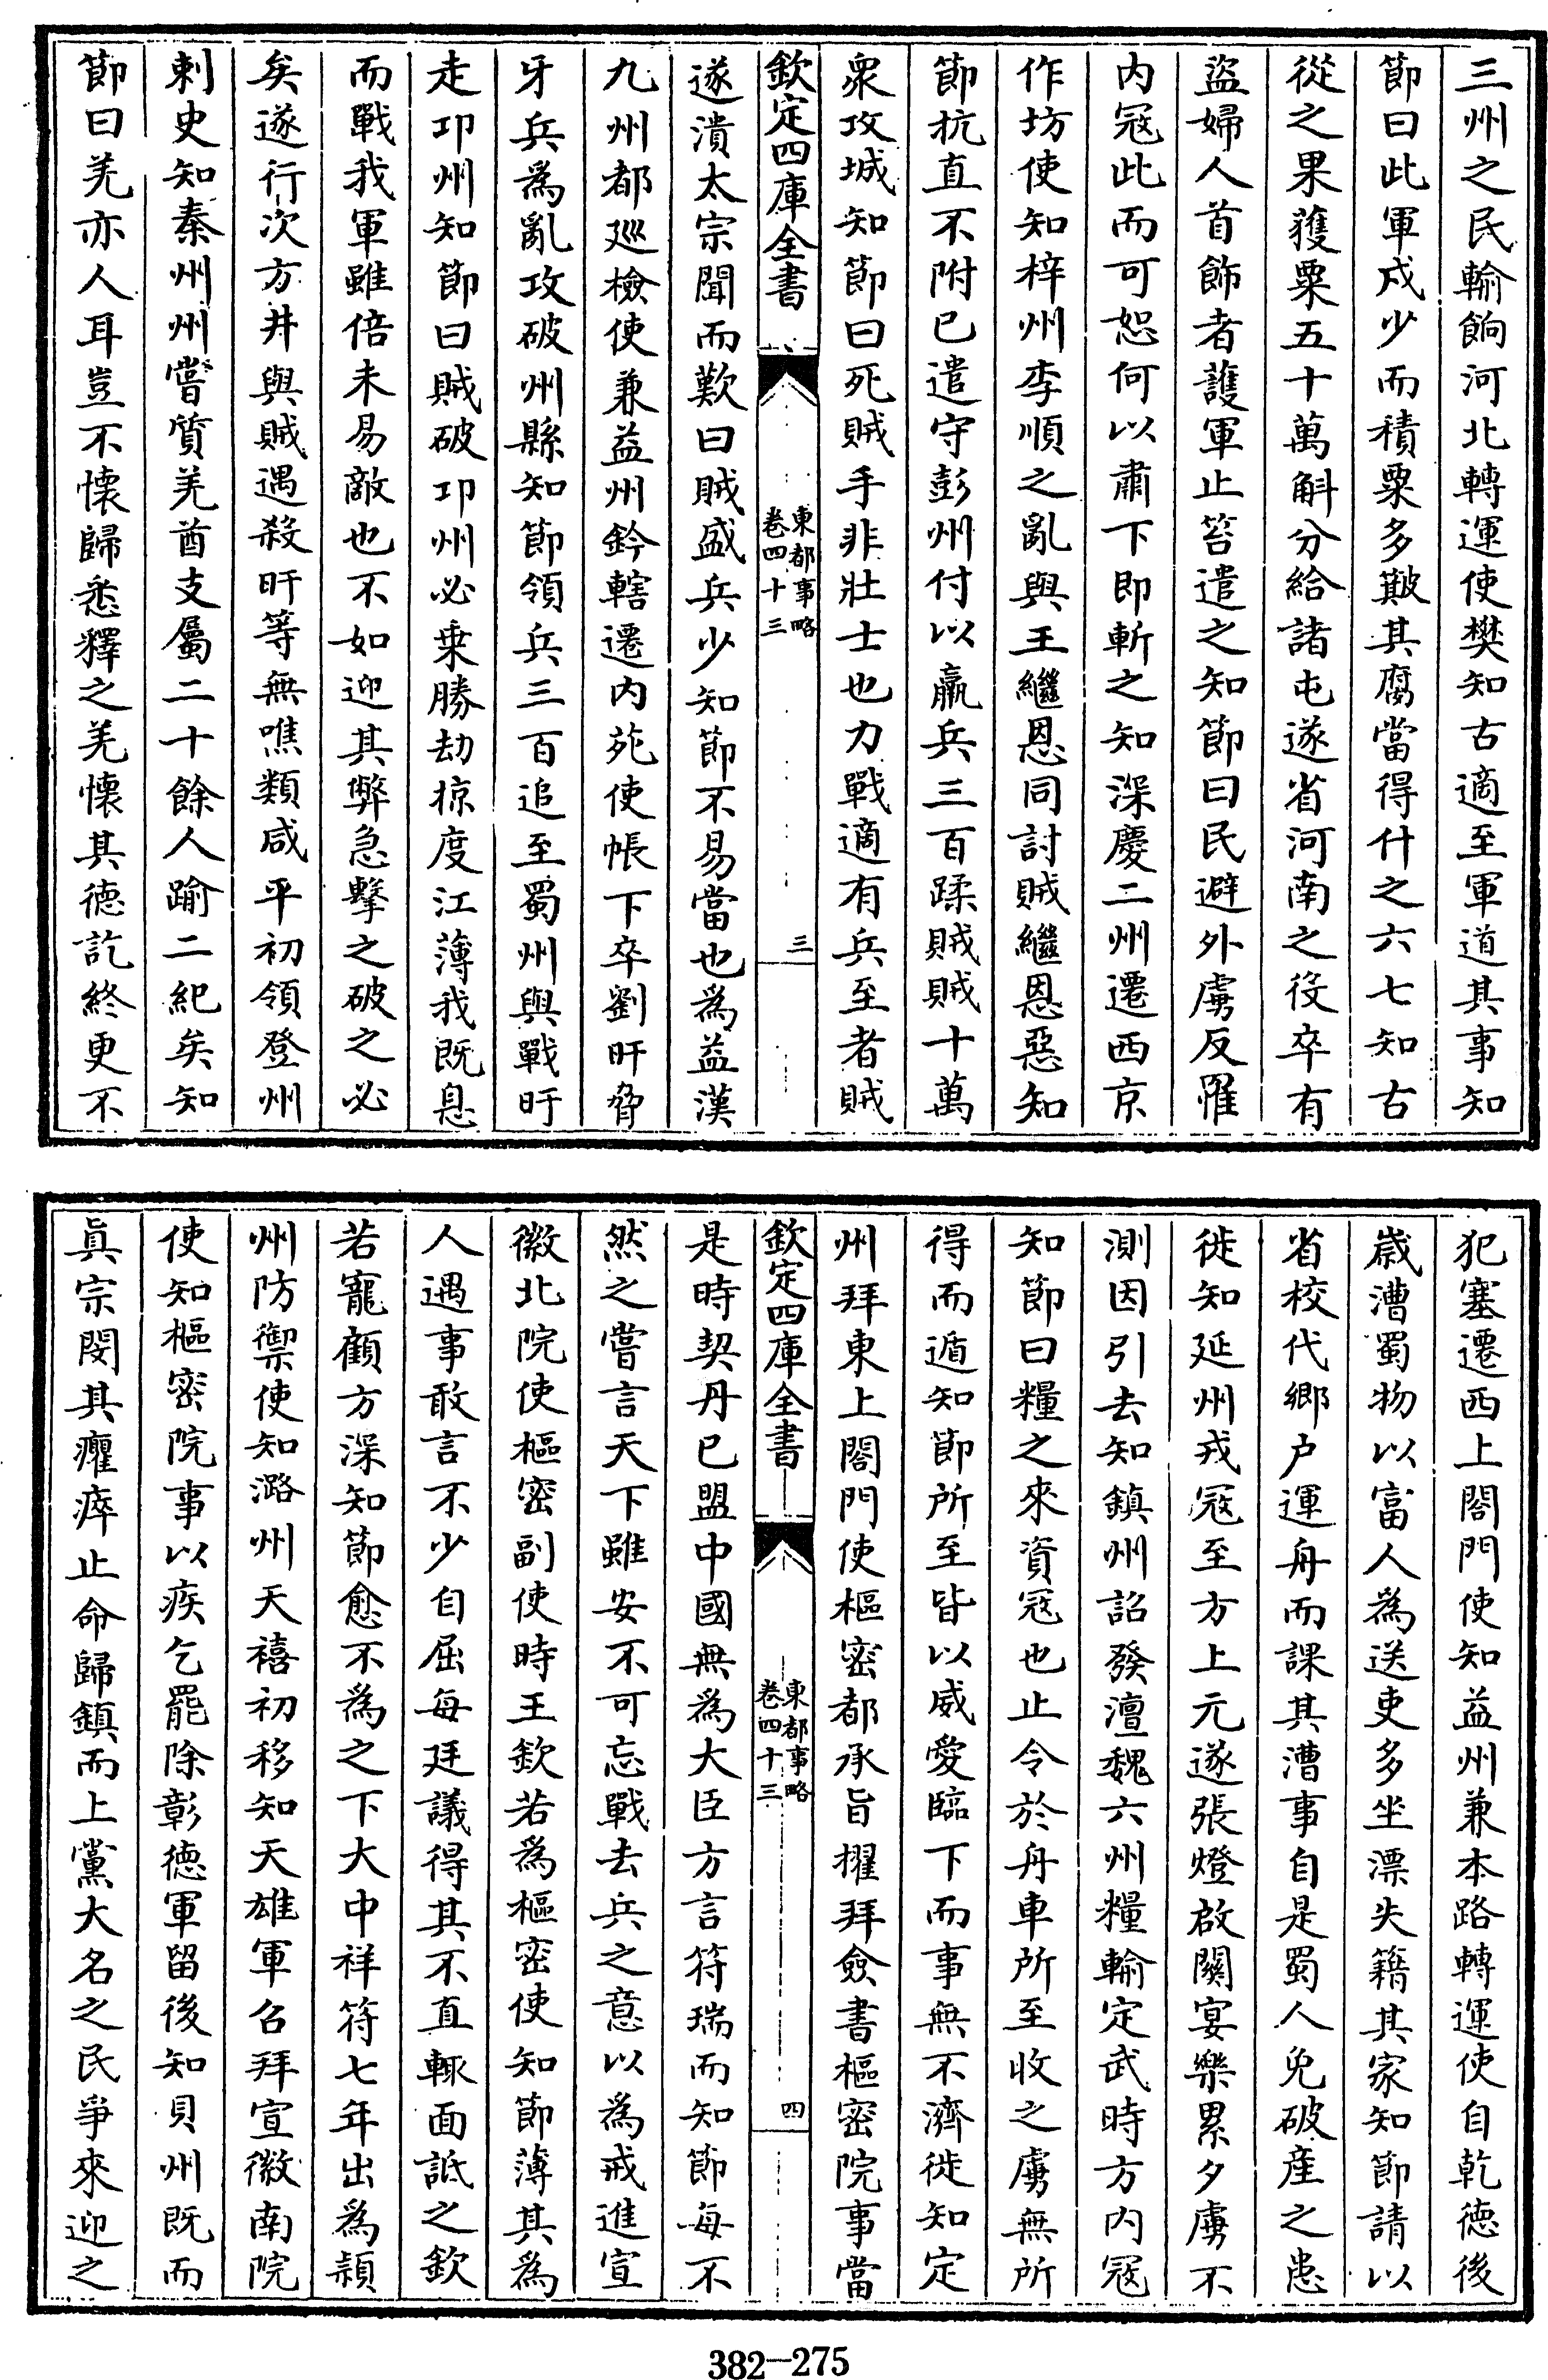 三州之民輸餉河北轉運使樊知古適至軍道其事知
節曰此軍戍少而積粟多敵其腐當得什之六七知古
從之果獲粟五十萬斛分給諸屯遂省河南之役卒有
盜婦人首飾者護軍止笞遣之知節曰民避外虜反罹
内冦此而可恕何以肅下即斬之知深慶二州遷西京
作坊使知梓州李順之亂與王繼恩同討賊繼恩惡知
節抗直不附已遣守彭州付以羸兵三百蹂賊賊十萬
衆攻城知節曰死賊手非壯士也力戰適有兵至者賊
欽定四庫全書
東都事略
卷四十三
三
遂潰太宗聞而歎曰賊盛兵少知節不易當也為益漢
九州都廵檢使兼益州鈐轄遷内苑使帳下卒劉旰脅
牙兵為亂攻破州縣知節領兵三百追至蜀州與戰旰
走卭州知節曰賊破卭州必乗勝劫掠度江薄我既息
而戰我軍雖倍未易敵也不如迎其弊急擊之破之必
矣遂行次方井與賊遇殺旰等無噍類咸平初領登州
刺史知秦州州嘗質羌酋支屬二十餘人踰二紀矣知
節曰羌亦人耳豈不懷歸悉釋之羌懷其德訖終更不
犯塞遷西上閤門使知益州兼本路轉運使自乾德後
歲漕蜀物以富人為送吏多坐漂失籍其家知節請以
省校代鄉户運舟而課其漕事自是蜀人免破産之患
徙知延州戎冦至方上元遂張燈啟闗宴樂累夕虜不
測因引去知鎮州詔發澶魏六州糧輸定武時方内冦
知節曰糧之來資冦也止令於舟車所至收之虜無所
得而遁知節所至皆以威愛臨下而事無不濟徙知定
州拜東上閤門使樞密都承旨擢拜僉書樞密院事當
欽定四庫全書
東都事略
卷四十三
四
是時契丹已盟中國無為大臣方言符瑞而知節每不
然之嘗言天下雖安不可忘戰去兵之意以為戒進宣
徽北院使樞密副使時王欽若為樞密使知節薄其為
人遇事敢言不少自屈每廷議得其不直輒面詆之欽
若寵顧方深知節愈不為之下大中祥符七年出為潁
州防禦使知潞州天禧初移知天雄軍召拜宣徽南院
使知樞密院事以疾乞罷除彰德軍留後知貝州既而
眞宗閔其癯瘁止命歸鎮而上黨大名之民爭來迎之
382-275